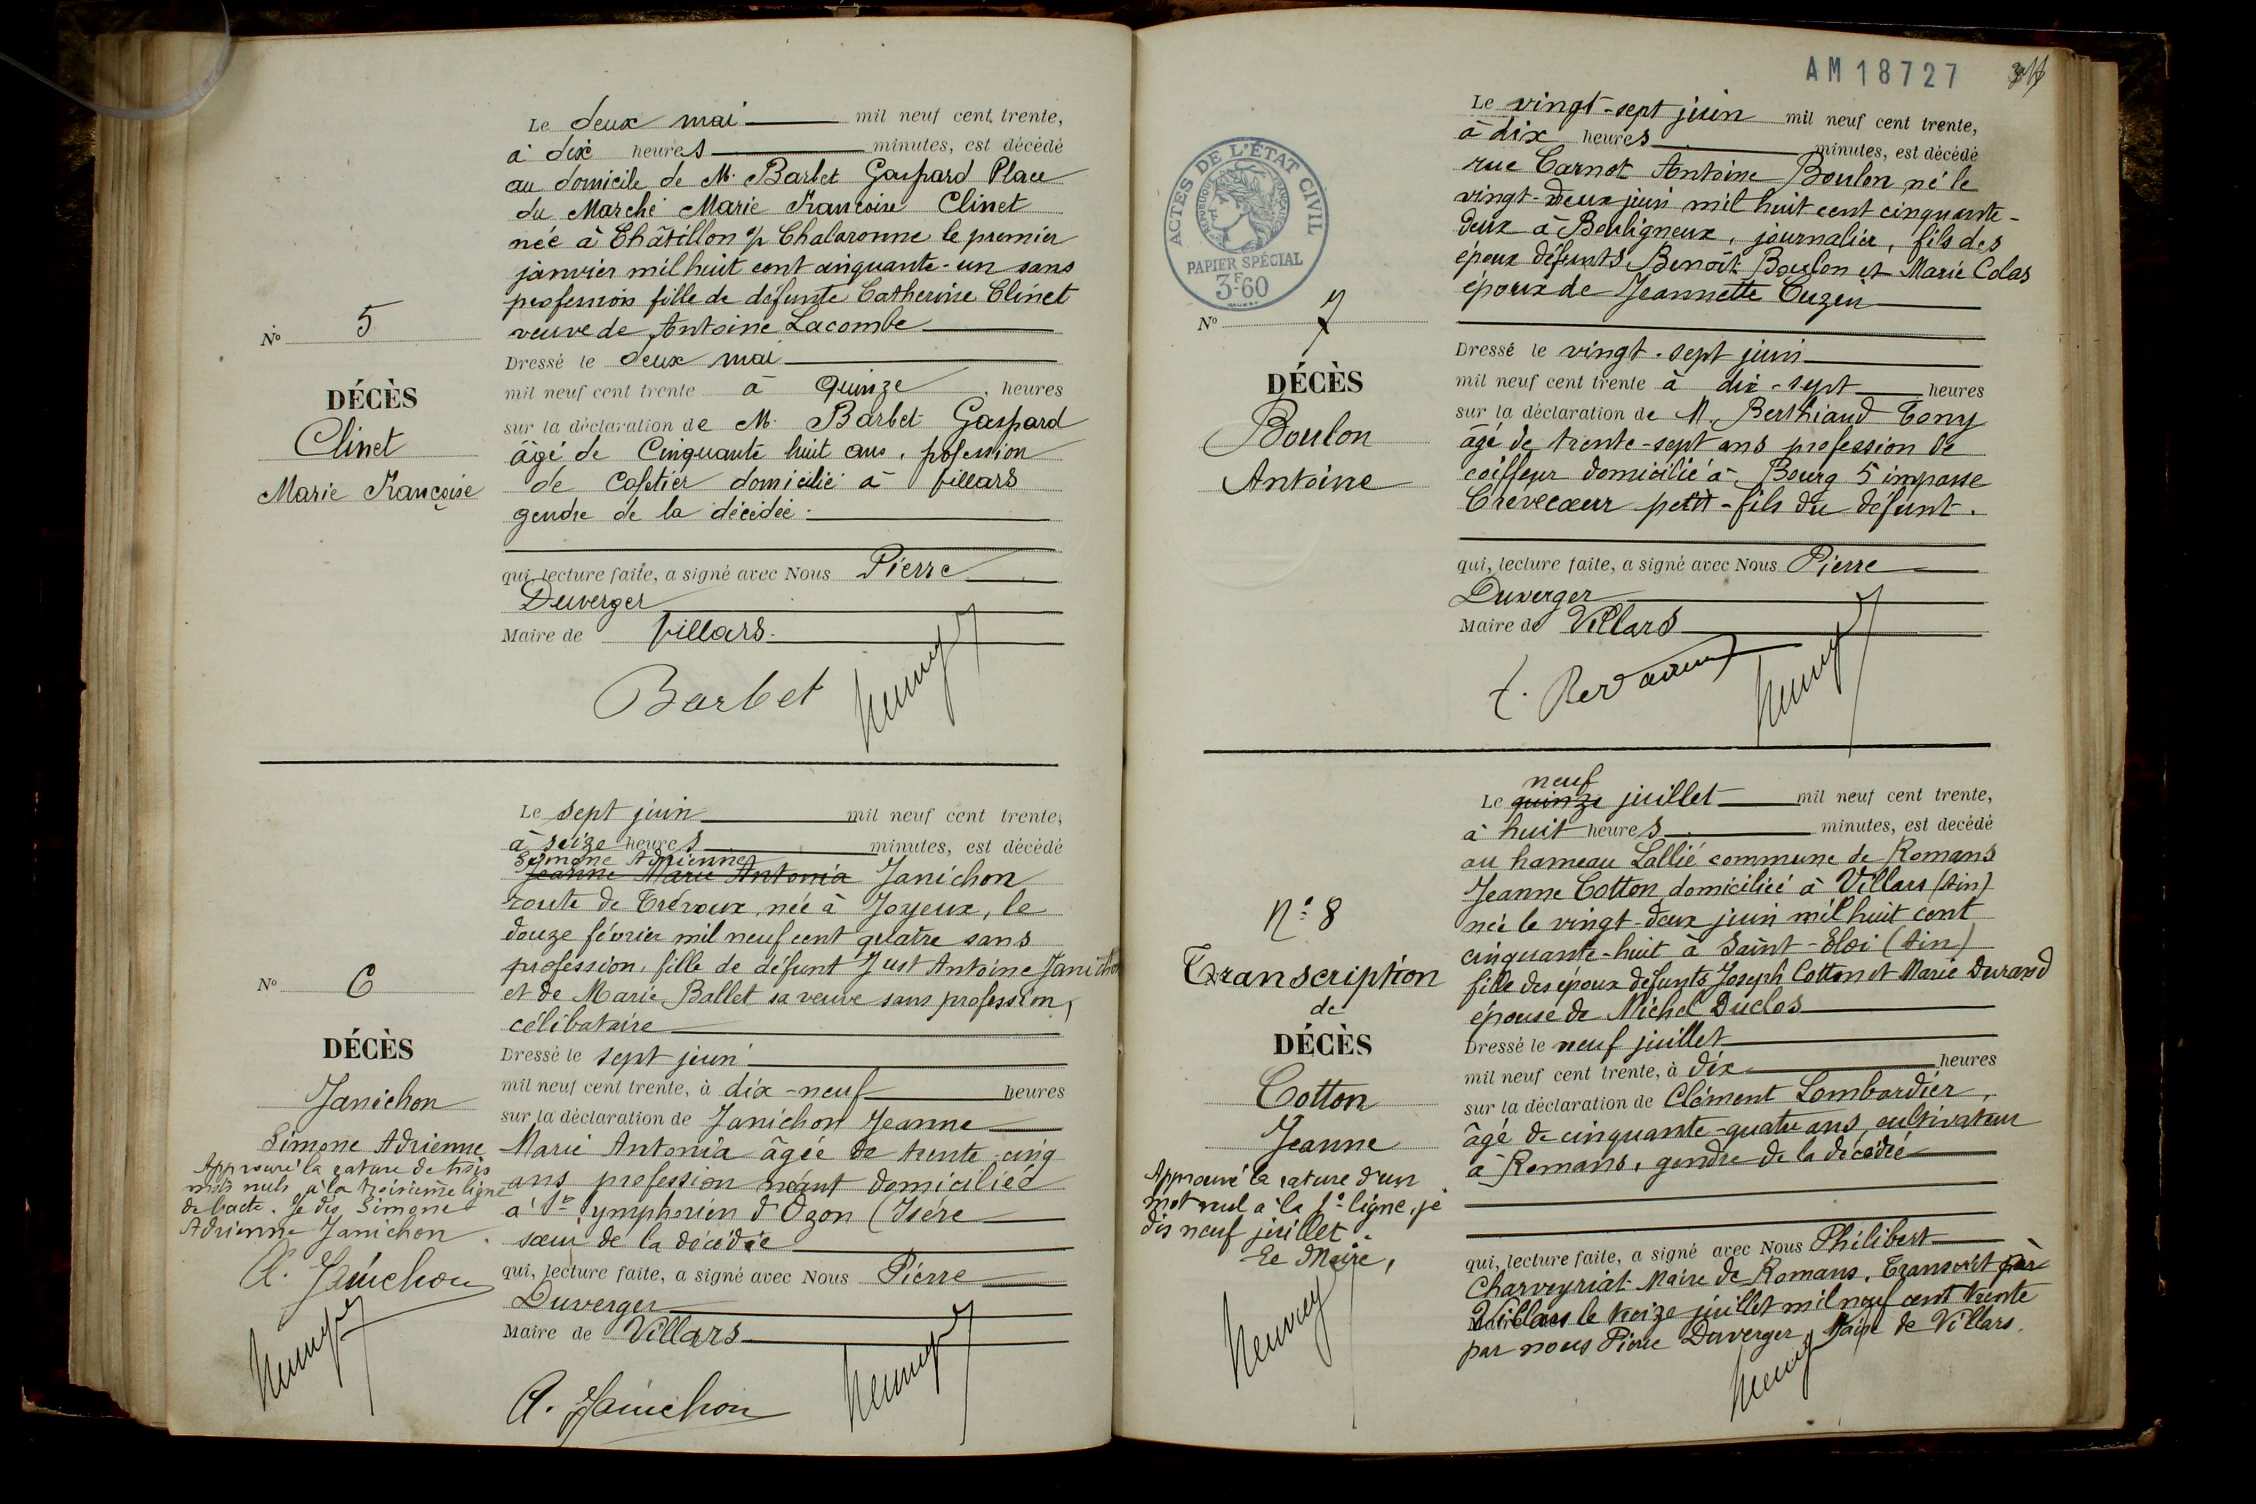 Le deux mai mil neuf cent trente,
à dix heures minutes, est décédé
au domicile de M. Barbet Gaspard Place
du Marché Marie Françoise Clinet
née à Châtillon s/ Chalaronne le premier
janvier mil huit cent cinquante-un sans
profession fille de défunte Catherine Clinet
veuve de Antoine Lacombe
N° 5
Dressé le deux mai
mil neuf cent trente à quinze heures
DÉCÈS
sur la déclaration de M. Barbet Gaspard
Clinet
âgé de Cinquante huit ans, profession
Marie Françoise
de cafetier domicilié à Villars
gendre de la décédée.
qui, lecture faite, a signé avec Nous Pierre
Duverger
Maire de Villars.
Barbet
Le sept juin mil neuf cent trente,
à seize heures minutes, est décédé
Simone Adrienne
Jeanne Marie Antonia Janichon
route de Trévoux, née à Joyeux, le
douze février mil neuf cent quatre sans
profession, fille de défunt Just Antoine Janichon
et de Marie Ballet sa veuve sans profession,
célibataire
N° 6
DÉCÈS
Janichon
Simone Adrienne
Approuvé la rature de trois
mots nuls à la troisième ligne
de l'acte. Je dis Simone
Adrienne Janichon.
A. Janichon
Dressé le sept juin
mil neuf cent trente, à dix-neuf heures
sur la déclaration de Janichon Jeanne
Marie Antonia âgée de trente-cinq
ans profession néant domiciliée
à St Symphorien d'Ozon (Isère
sœur de la décédée
qui, lecture faite, a signé avec Nous Pierre
Duverger
Maire de Villars
A. Janichon
AM 18727
ACTES DE L'ÉTAT CIVIL
RÉPUBLIQUE FRANÇAISE
PAPIER SPÉCIAL
3F60
Le vingt-sept juin mil neuf cent trente,
à dix heures minutes, est décédé
rue Carnot Antoine Boulon né le
vingt-deux juin mil huit cent cinquante-
deux à Bouligneux, journalier, fils des
époux défunts Benoît Boulon et Marie Colas
époux de Jeannette Cuzin
N° 7
DÉCÈS
Boulon
Antoine
Dressé le vingt-sept juin
mil neuf cent trente à dix-sept heures
sur la déclaration de M. Berthiaud Tony
âgé de trente-sept ans profession de
coiffeur domicilié à Bourg 5 impasse
Crèvecœur petit-fils du défunt.
qui, lecture faite, a signé avec Nous Pierre
Duverger
Maire de Villars
neuf
Le quinze juillet mil neuf cent trente,
à huit heures minutes, est decédé
au hameau Lallié commune de Romans
Jeanne Cotton domiciliée à Villars (Ain)
née le vingt-deux juin mil huit cent
cinquante-huit à Saint-Eloi (Ain)
fille des époux défunts Joseph Cotton et Marie Durand
épouse de Michel Duclos
N° 8
Transcription
de
DÉCÈS
Cotton
Jeanne
Approuvé la rature d'un
mot nul à la 1e ligne, je
dis neuf juillet.
Le Maire,
Dressé le neuf juillet
mil neuf cent trente, à dix heures
sur la déclaration de Clément Lombardier,
âgé de cinquante-quatre ans, cultivateur
à Romans, gendre de la décédée
qui, lecture faite, a signé avec Nous Philibert
Charveyriat Maire de Romans. Transcrit par
Villars le treize juillet mil neuf cent trente
par nous Pierre Duverger, Maire de Villars.